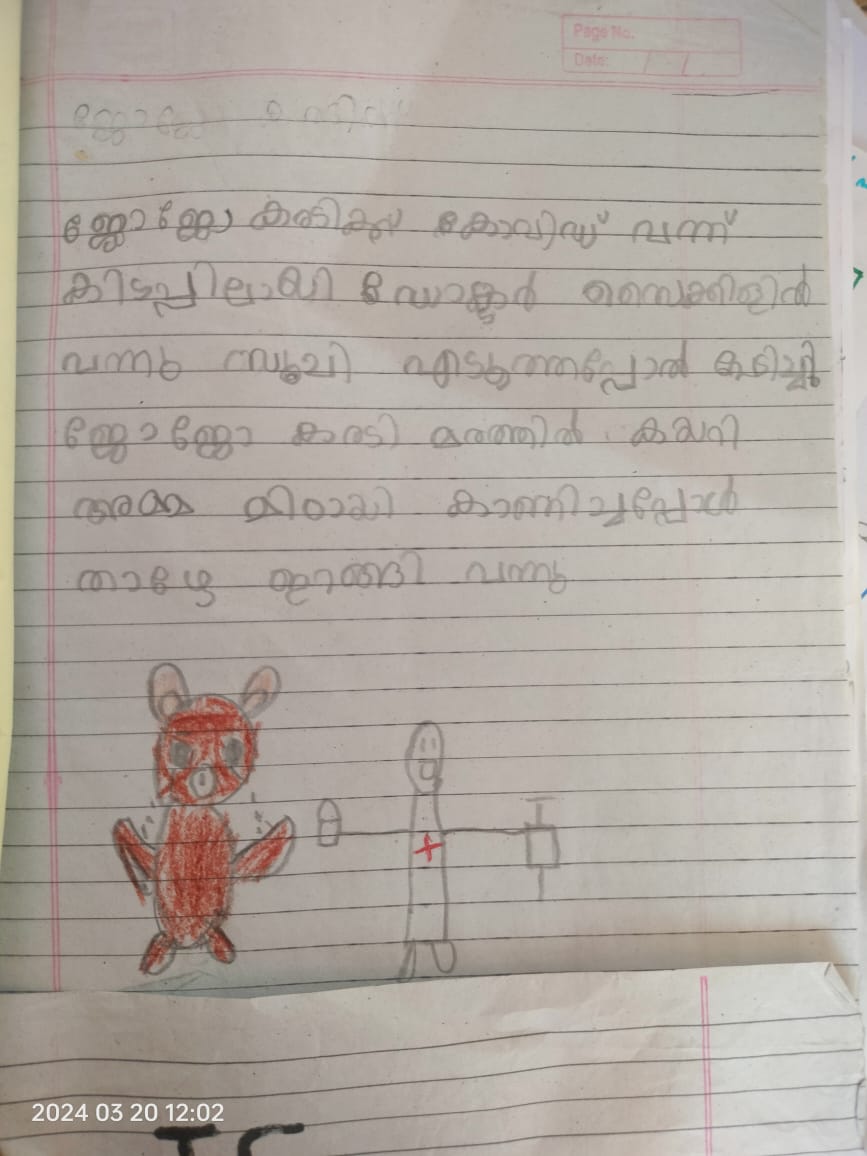 Page No.
Date: / /
ജോജോ
ജോജോ കരടിക്ക് കോവിഡ് വന്ന്
കിടപ്പിലായി ഡോക്ടർ സൈക്കിളിൽ
വന്നു സൂചി എടുത്തപ്പോൽ
ജോജോ കരടി മരത്തിൽ കയറി
അമ്മ മിഠായി കാണിച്ചപ്പോൾ
താഴേ ഇറങ്ങി വന്നു
2024 03 20 12:02